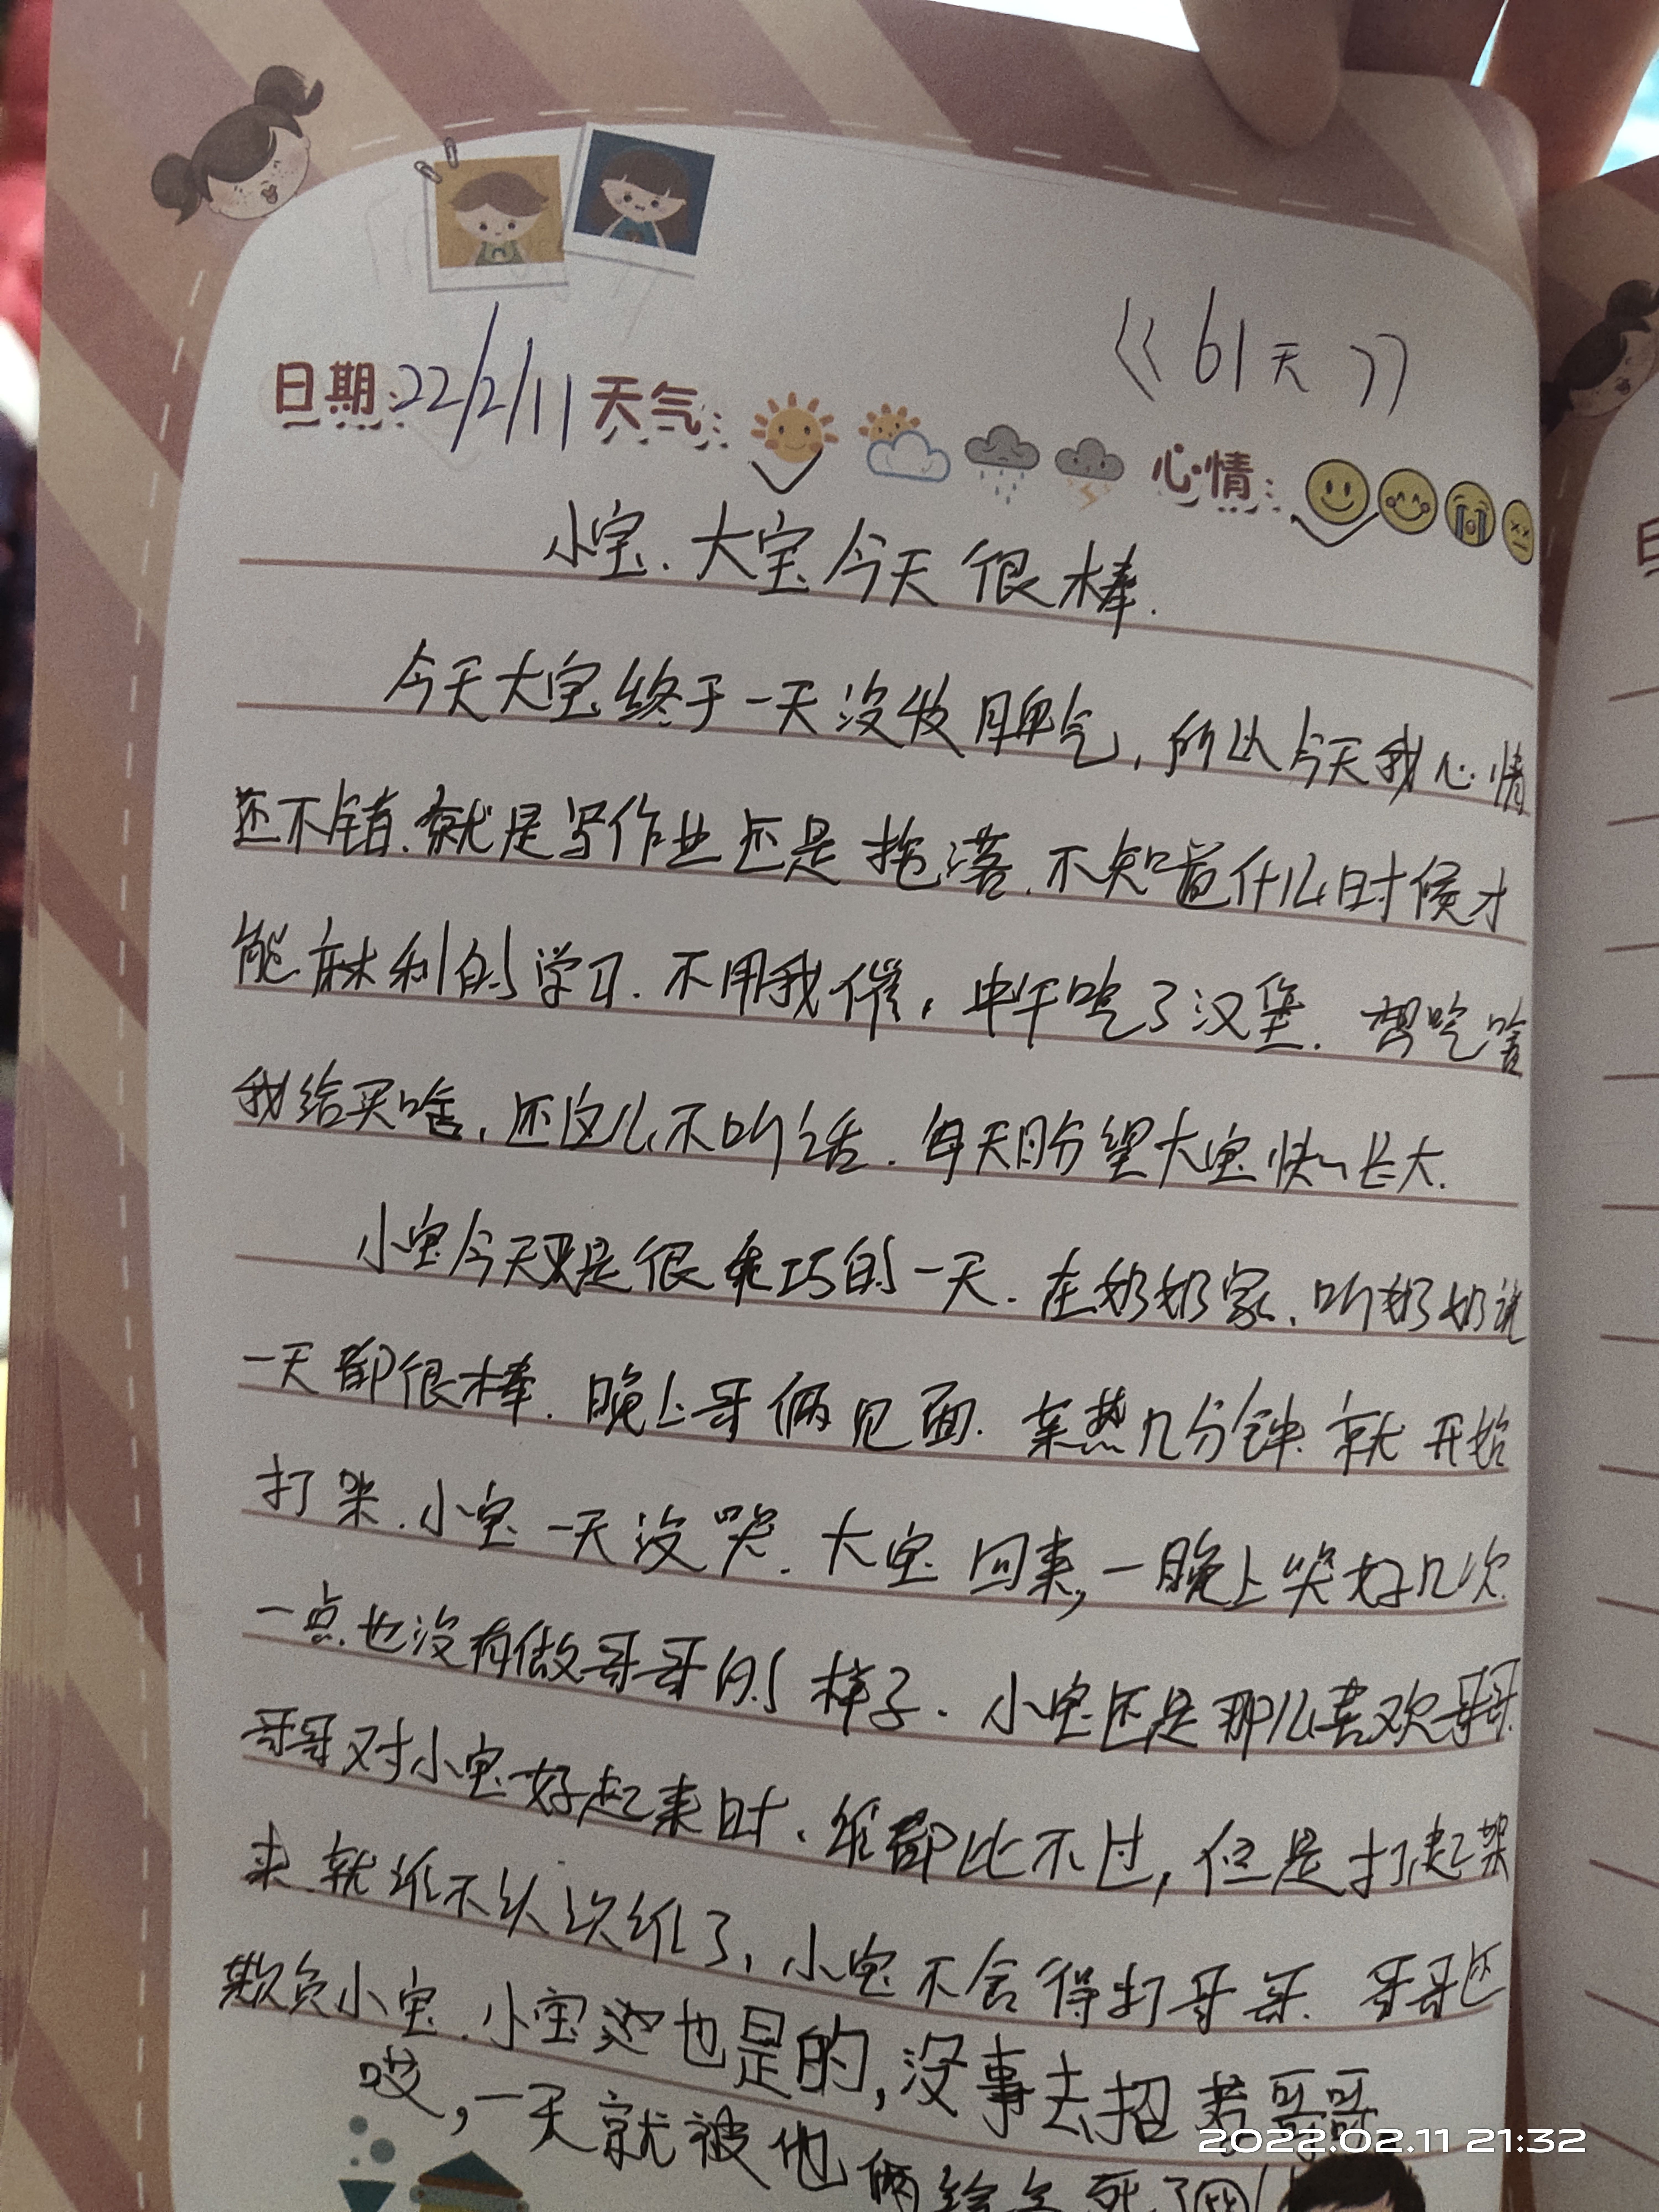 《61天》
日期:22/2/11 天气: 心情:
小宝.大宝今天很棒.
今天大宝终于一天没发脾气,所以今天我心情
还不错.就是写作业还是拖落.不知道什么时候才
能麻利的学习.不用我催,中午吃了汉堡.想吃啥
我给买啥,还这么不听话.每天盼望大宝快快长大.
小宝今天是很乖巧的一天.在奶奶家.听奶奶说
一天都很棒.晚上哥俩见面.亲热几分钟就开始
打架.小宝一天没哭.大宝回来,一晚上哭好几次
一点也没有做哥哥的样子.小宝还是那么喜欢哥哥.
哥哥对小宝好起来时.谁都比不过,但是打起架
来.就谁不认识谁了,小宝不舍得打哥哥.哥哥还
欺负小宝.小宝也是的,没事去招惹哥哥
哎,一天就被他俩给气死了
2022.02.11 21:32